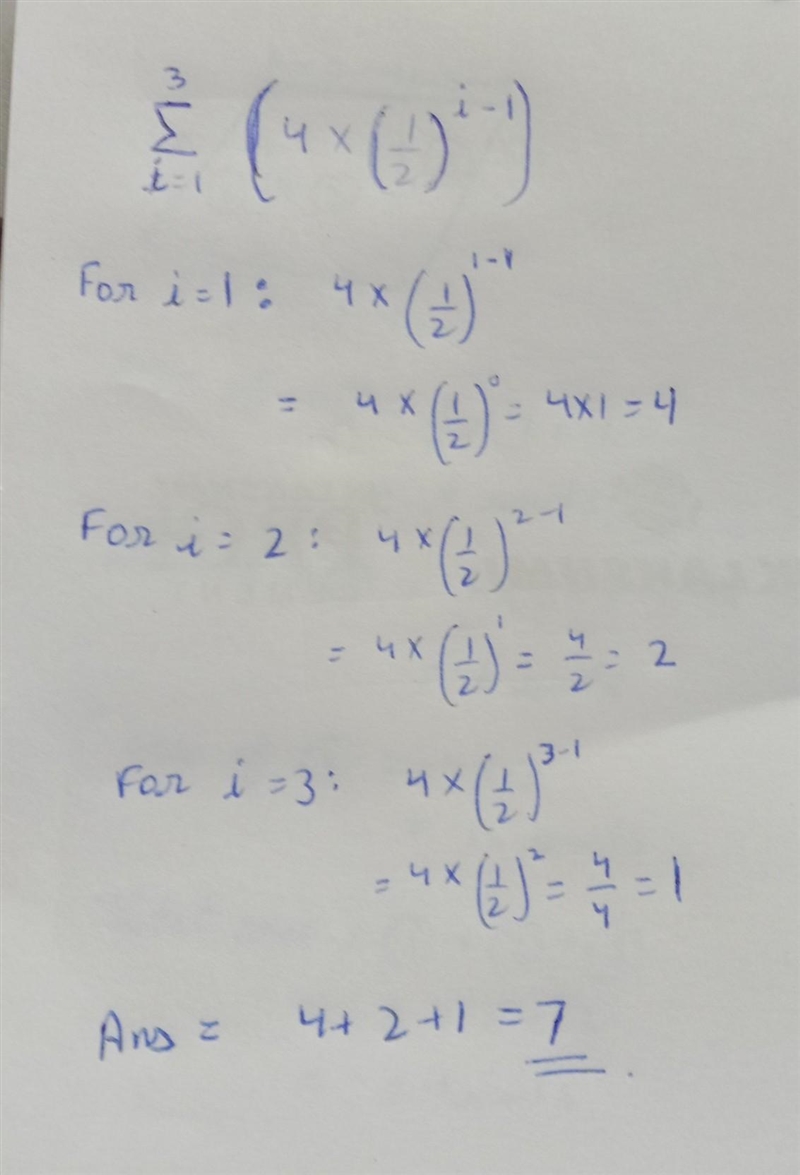 3
∑ (4 × (1/2)^(i-1))
i=1
For i=1 : 4 × (1/2)^(1-1)
= 4 × (1/2)^0 = 4×1 = 4
For i = 2 : 4 × (1/2)^(2-1)
= 4 × (1/2)^1 = 4/2 = 2
For i =3 : 4 × (1/2)^(3-1)
= 4 × (1/2)^2 = 4/4 = 1
Ans = 4+ 2 +1 = 7 .